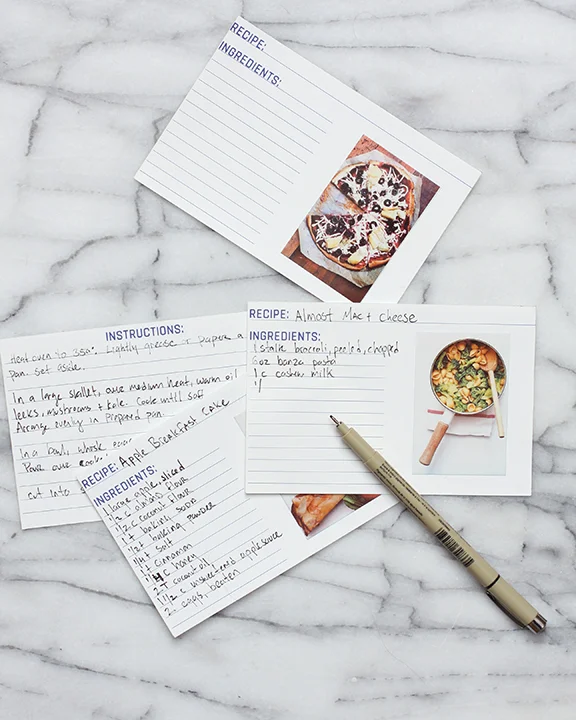 RECIPE:
INGREDIENTS:
RECIPE: Almost Mac + Cheese
INGREDIENTS:
1 stalk broccoli, peeled, chopped
8oz banza pasta
1 c cashew milk
INSTRUCTIONS:
Heat oven to 350°. Lightly grease + prepare a
pan. Set aside.
In a large skillet, over medium heat, warm oil
leeks, mushrooms + kale. Cook until soft
Arrange evenly in prepared pan.
In a bowl, whisk
Pour over
cut into
RECIPE: Apple Breakfast Cake
INGREDIENTS:
1 large apple, sliced
1/2 c almond flour
1/2 c coconut flour
baking soda
baking powder
salt
cinnamon
1/4 c honey
2 T coconut oil
1/2 c unsweetened applesauce
2 eggs, beaten